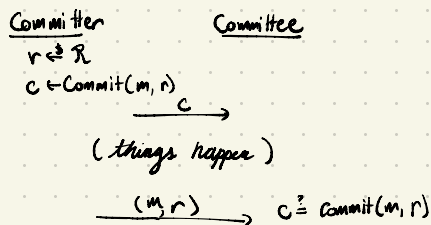 Committer Committee
r ←$ R
c ← Commit(m, r)
c
(things happen)
(m, r) c ≟ Commit(m, r)